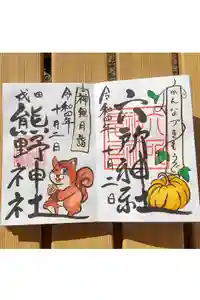 かんなづきもうで
六所神社
令和四年十月二日
神無月詣
令和四年
十月二日
熊野神社